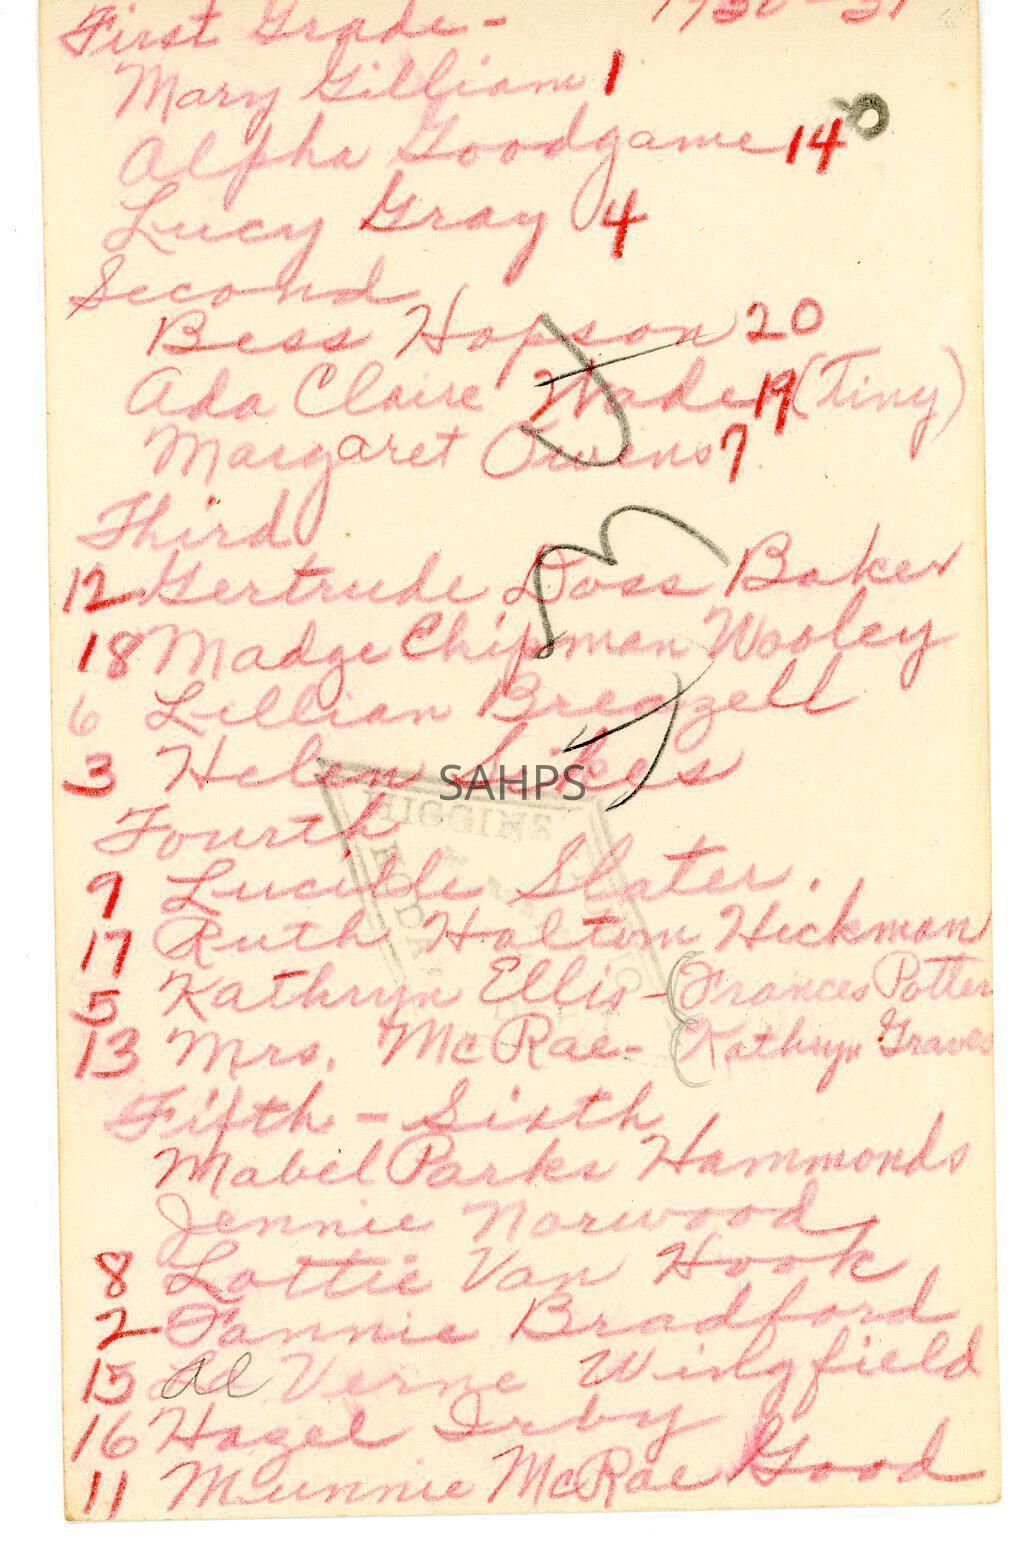 First Grade - 1930-31
Mary Gilliam 1
Alpha Goodgame 14
Lucy Gray 4
Second
Bess Hopson 20
Ada Claire Wade 19 (Tiny)
Margaret Owens 7
Third
12 Gertrude Doss Baker
18 Madge Chipman Wooley
6 Lillian Breazell
3 Helen Sikes
SAHPS
HIGGINS
Fourth
9 Lucille Slater.
17 Ruth Holtom Hickman
5 Kathryn Ellis - (Frances Potter
13 Mrs. McRae - (Kathryn Graves
Fifth - Sixth
Mabel Parks Hammonds
Jennie Norwood
8 Lottie Van Hook
2 Fannie Bradford
15 Al Verne Wingfield
16 Hazel Irby
11 Munnie McRae Good